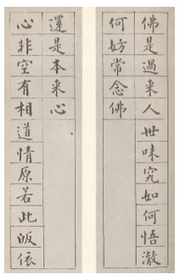 佛是過来人世味究如何悟澈
何妨常念佛
心非空有相道情原若此皈依
還是本来心